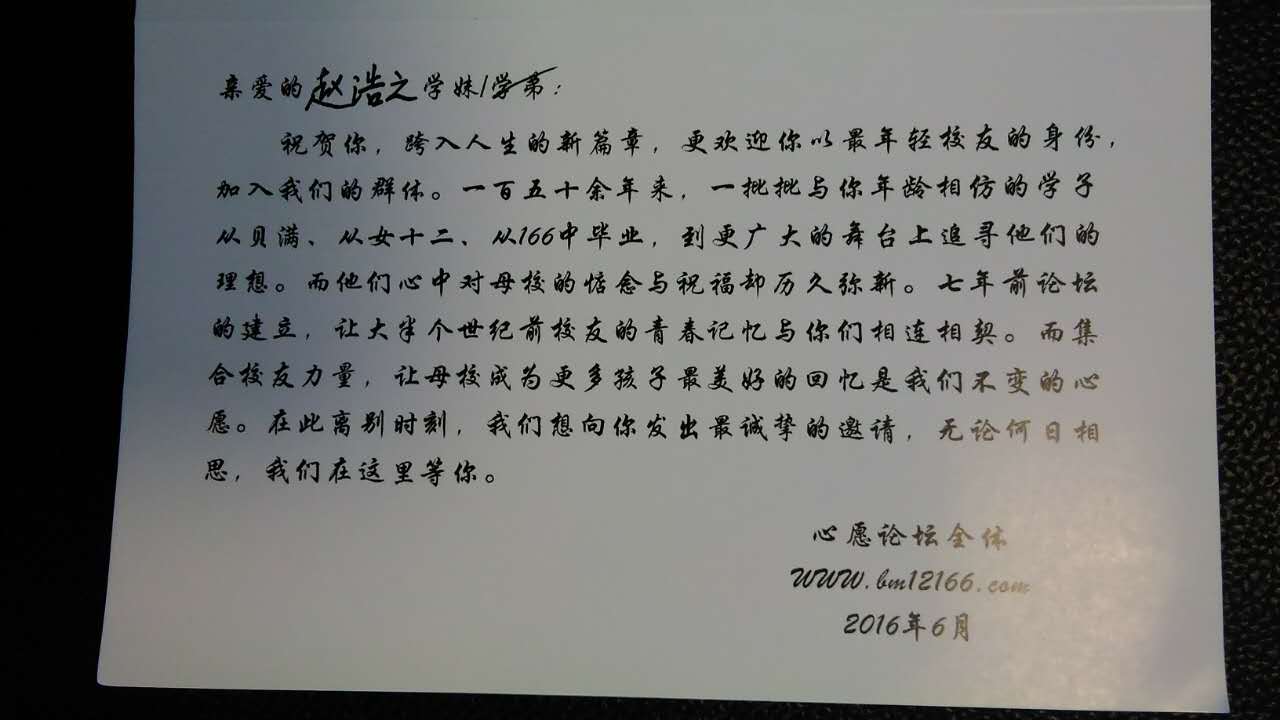 亲爱的赵浩之学妹/学弟：
祝贺你，跨入人生的新篇章，更欢迎你以最年轻校友的身份，
加入我们的群体。一百五十余年来，一批批与你年龄相仿的学子
从贝满、从女十二、从166中毕业，到更广大的舞台上追寻他们的
理想。而他们心中对母校的惦念与祝福却历久弥新。七年前论坛
的建立，让大半个世纪前校友的青春记忆与你们相连相契。而集
合校友力量，让母校成为更多孩子最美好的回忆是我们不变的心
愿。在此离别时刻，我们想向你发出最诚挚的邀请，无论何日相
思，我们在这里等你。
心愿论坛全体
WWW.bm12166.com
2016年6月